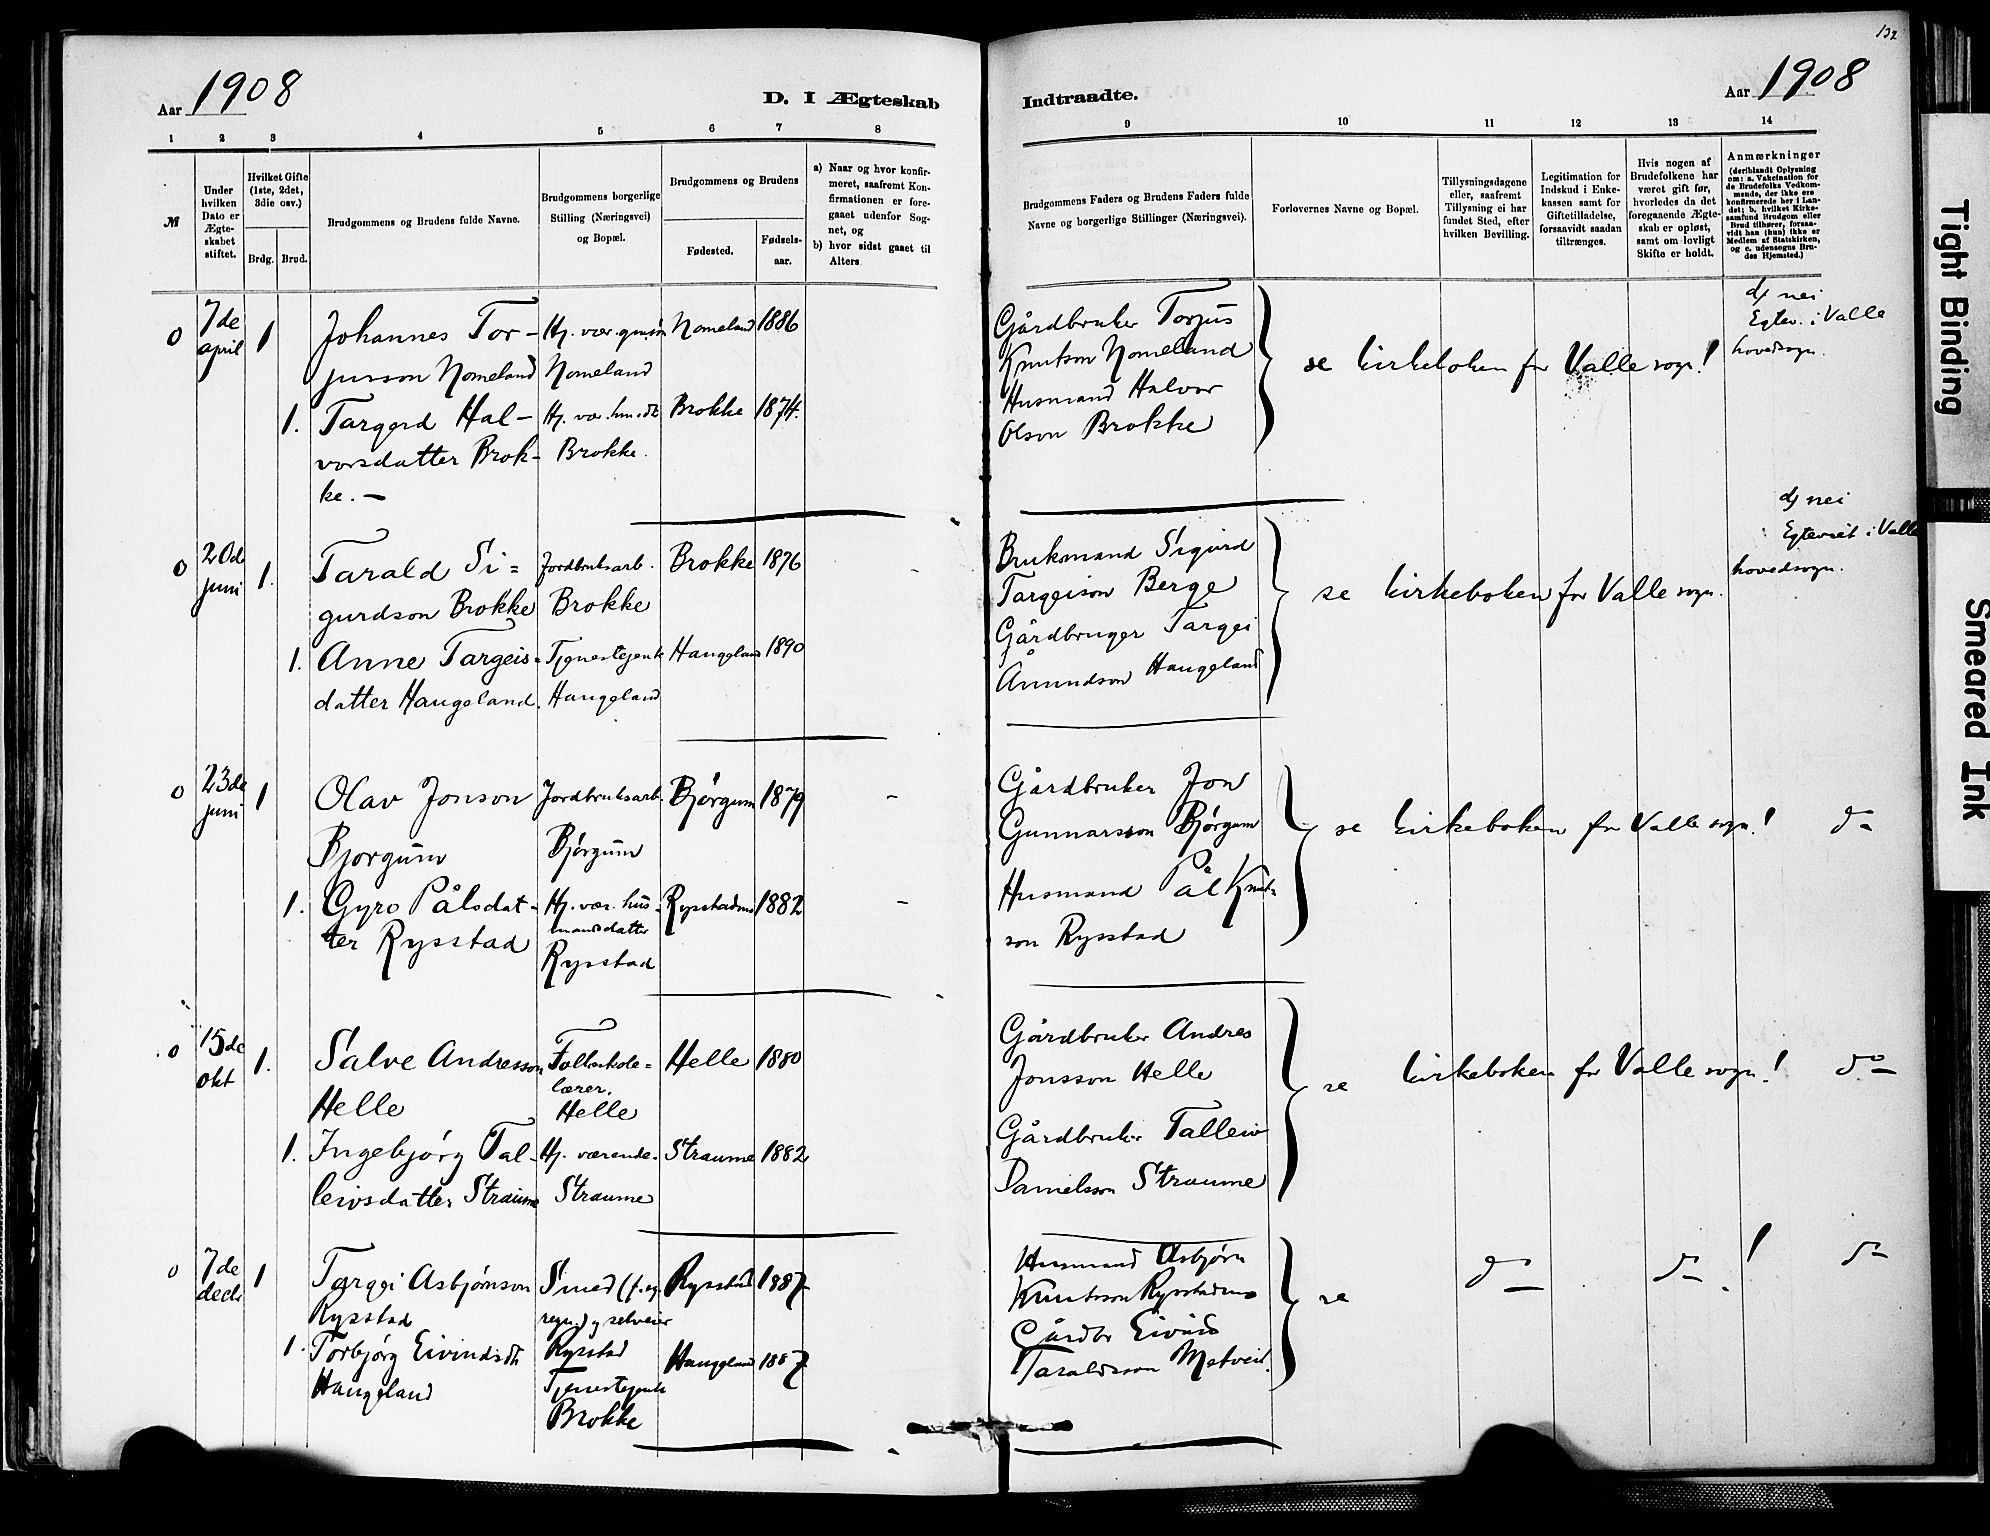 132
Aar 1908
D. I Ægteskab
Indtraadte.
Aar 1908
1 2 3 4 5 6 7 8
9 10 11 12 13 14
M
Under hvilken Dato er Ægteskabet stiftet.
Hvilket Gifte (1ste, 2det, 3die osv.)
Brdg. Brud.
Brudgommens og Brudens fulde Navne.
Brudgommens borgerlige Stilling (Næringsvei) og Bopæl.
Brudgommens og Brudens
Fødested.
Fødsels-aar.
a) Naar og hvor konfirmeret, saafremt Konfirmationen er foregaaet udenfor Sognet, og
b) hvor sidst gaaet til Alters
Brudgommens Faders og Brudens Faders fulde Navne og borgerlige Stillinger (Næringsvei).
Forlovernes Navne og Bopæl.
Tillysningsdagene eller, saafremt Tillysning ei har fundet Sted, efter hvilken Bevilling.
Legitimation for Indskud i Enkekassen samt for Giftetilladelse, forsaavidt saadan tiltrænges.
Hvis nogen af Brudefolkene har været gift før, hvorledes da det foregaaende Ægteskab er opløst, samt om lovligt Skifte er holdt.
Anmærkninger
(deriblandt Oplysning om: a. Vakcination for de Brudefolks Vedkommende, der ikke ere konfirmerede her i Landet; b. hvilket Kirkesamfund Brudgom eller Brud tilhører, forsaavidt han (hun) ikke er Medlem af Statskirken, og c. udensogns Brudes Hjemsted.)
0 7de april 1
Johannes Tor-
jusson Nomeland
Hj. vær. gmsøn
Nomeland
Nomeland 1886
1. Targerd Hal-
vorsdatter Brok-
ke. —
Hj. vær. hm.dt
Brokke.
Brokke 1874.
Gårdbruker Torjus
Knutson Nomeland
Husmand Halvor
Olson Brokke
se kirkeboken for Valle sogn!
d) nei
Egtev. i Valle
hovedsogn.
0 20de juni 1.
Tarald Si=
gurdson Brokke
Jordbruksarb.
Brokke
Brokke 1876
1. Anne Targeis=
datter Haugeland.
Tjenestejente
Haugeland
Haugeland 1890
Bruksmand Sigurd
Targeison Berge
Gårdbruger Targei
Åmundson Haugeland
se kirkeboken for Valle sogn.
d) nei
Egteviet i Valle
hovedsogn.
0 23de juni 1
Olav Jonson
Bjorgum
Jordbruksarb.
Bjørgum
Bjørgum 1879 -
1. Gyro Pålsdat-
ter Rysstad
Hj. vær. hus-
mandsdatter
Rysstad
Rysstadmo 1882 -
Gårdbruker Jon
Gunnarsson Bjørgum
Husmand Pål Knut=
son Rysstad
se kirkeboken for Valle sogn! do
0 15de okt 1.
Salve Andresson
Helle
Folkeskole-
lærer.
Helle
Helle 1880
1. Ingebjørg Tal-
leivsdatter Straume
Hj. værende.
Straume
Straume 1882
Gårdbruker Andres
Jonsson Helle
Gårdbruker Talleiv
Danielsson Straume
se kirkeboken for Valle sogn! do
0 7de decb 1
Targei Asbjønson
Rysstad
Smed (f. eg.
regn.) g selveier
Rysstad
Rysstad 1887
1. Torbjørg Eivindsdt
Haugeland
Tjenestejente
Brokke
Haugeland 1887
Husmand Asbjørn
Knutsson Rysstadmo
Gårdbr Eivind
Taraldsson Metveit.
se do do ! do
Tight Binding
Smeared Ink